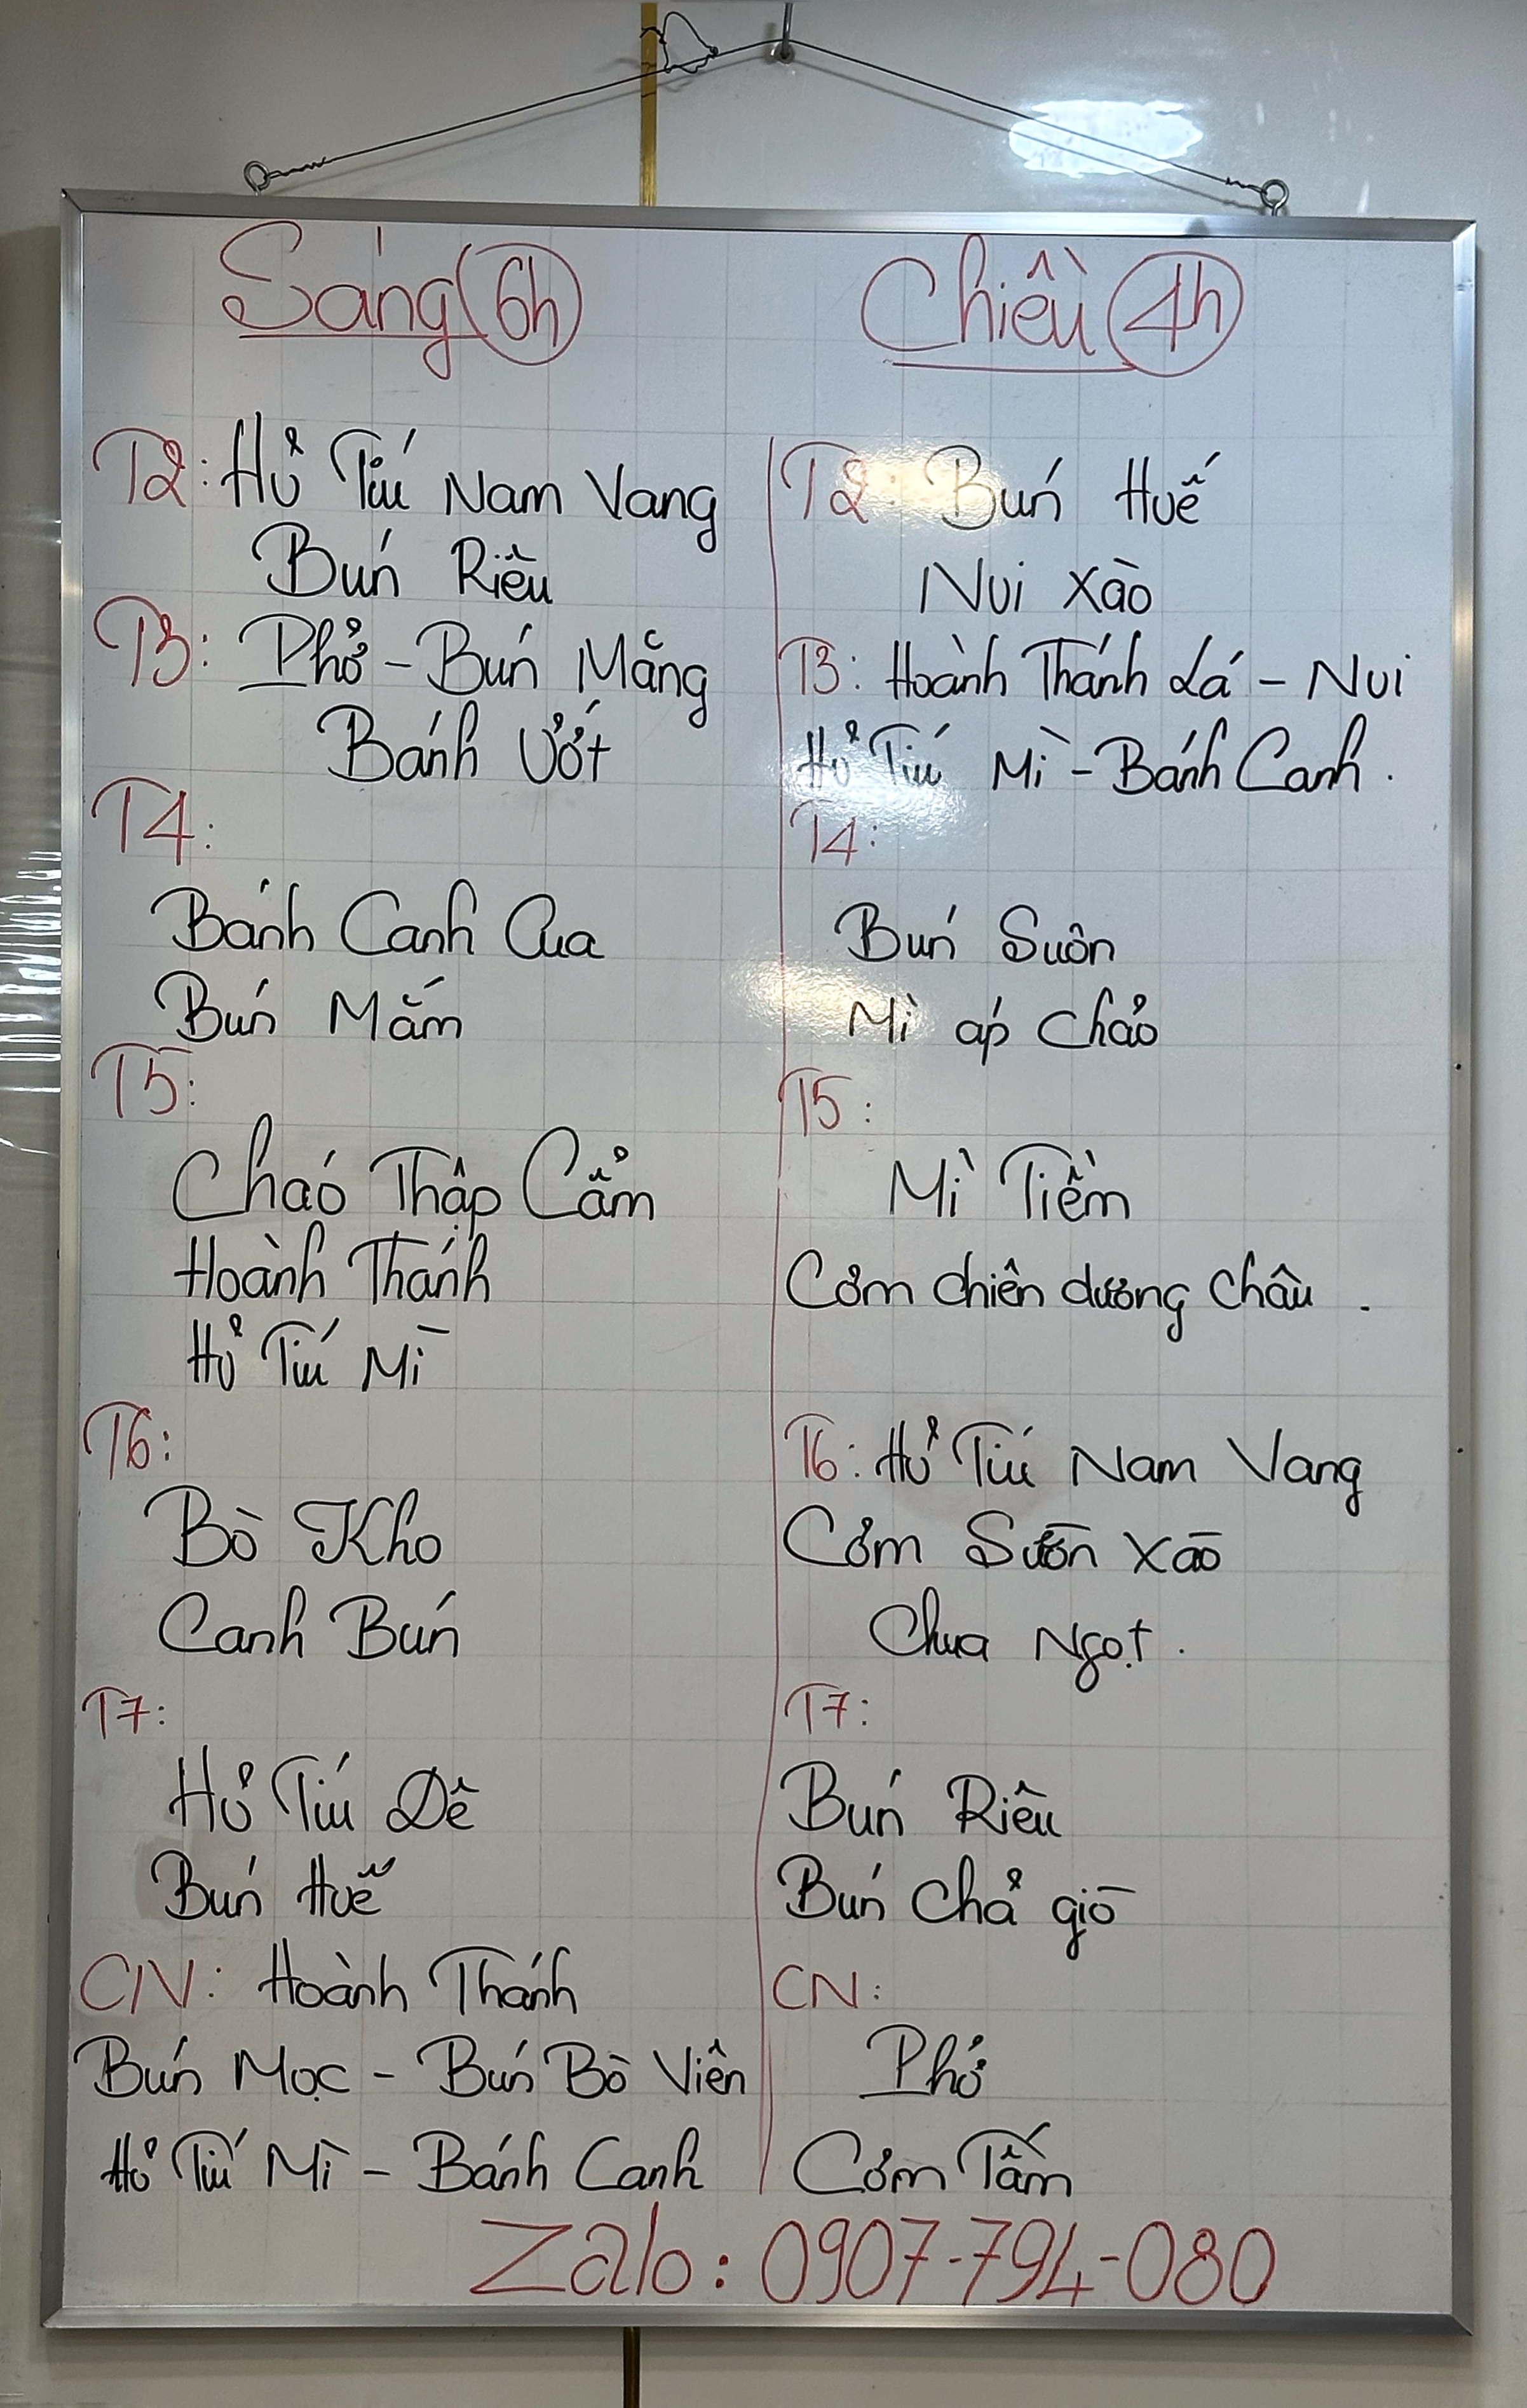 Sáng 6h
T2: Hủ Tiú Nam Vang
Bún Riêù
T3: Phở - Bún Măng
Bánh Ướt
T4:
Bánh Canh Cua
Bún Mắm
T5:
Cháo Thập Cẩm
Hoành Thánh
Hủ Tiú Mì
T6:
Bò Kho
Canh Bún
T7:
Hủ Tiú Dê
Bún Huế
CN: Hoành Thánh
Bún Mọc - Bún Bò Viên
Hủ Tiú Mì - Bánh Canh
Chiều 4h
T2: Bún Huế
Nui Xào
T3: Hoành Thánh Lá - Nui
Hủ Tiú Mì - Bánh Canh.
T4:
Bún Suôn
Mì áp Chảo
T5:
Mì Tiềm
Cơm chiên dương Châu.
T6: Hủ Tiú Nam Vang
Cơm Sườn Xào
Chua Ngọt.
T7:
Bún Riêu
Bún Chả giò
CN:
Phở
Cơm Tấm
Zalo: 0907-794-080